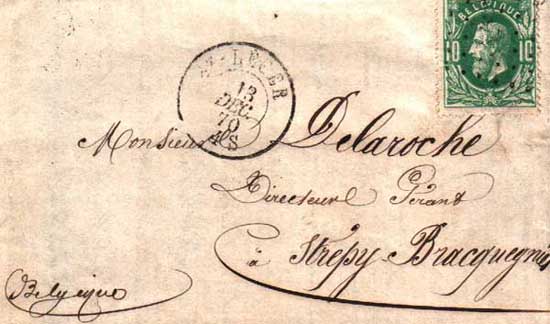 BELGIQUE
10 10
ST LÉGER
13
DEC.
70
4S
Monsieur Delaroche
Directeur Gérant
à Strépy-Bracquegnies
Belgique